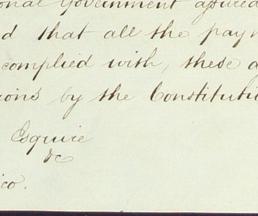 ional Government afforded
d that all the paym
complied with, these a
ions by the Constitutio
Esquire
&c
ico.